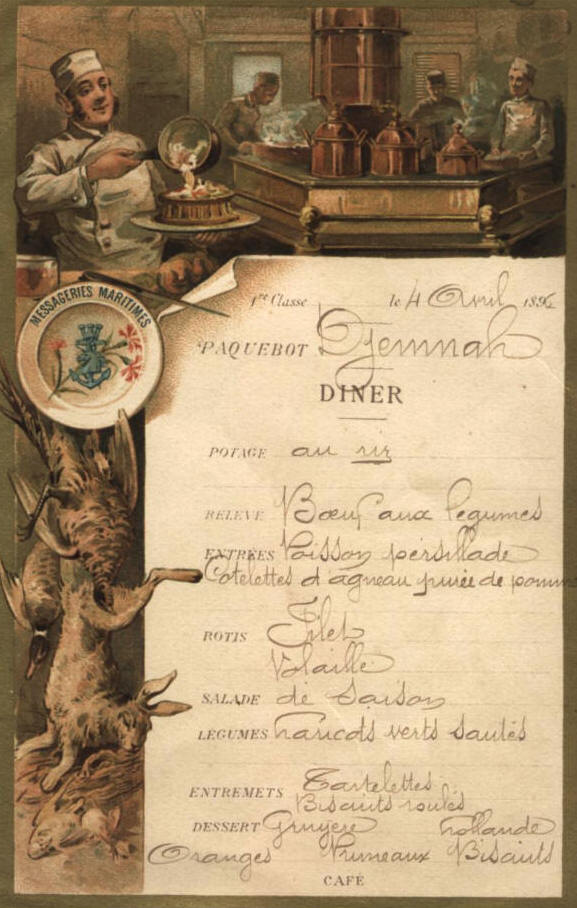 MESSAGERIES MARITIMES
1re Classe le 4 Avril 1896
PAQUEBOT Djemnah
DINER
POTAGE au riz
RELEVÉ Bœuf aux legumes
ENTRÉES Poisson persillade
Cotelettes d'agneau purée de pomm
ROTIS Filet
Volaille
SALADE de Saison
LÉGUMES haricots verts sautés
ENTREMETS Tartelettes
Biscuits roulés
DESSERT Gruyère hollande
Oranges Pruneaux Biscuits
CAFÉ